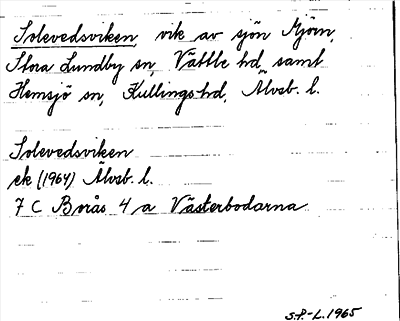 Solevedsviken, vik av sjön Mjörn,
Stora Lundby sn, Vättle hd samt
Hemsjö sn, Kullings hd, Älvsb. l.
Solevedsviken
ek (1964) Älvsb. l.
7 C Borås 4 a Västerbodarna
S.P.-L. 1965